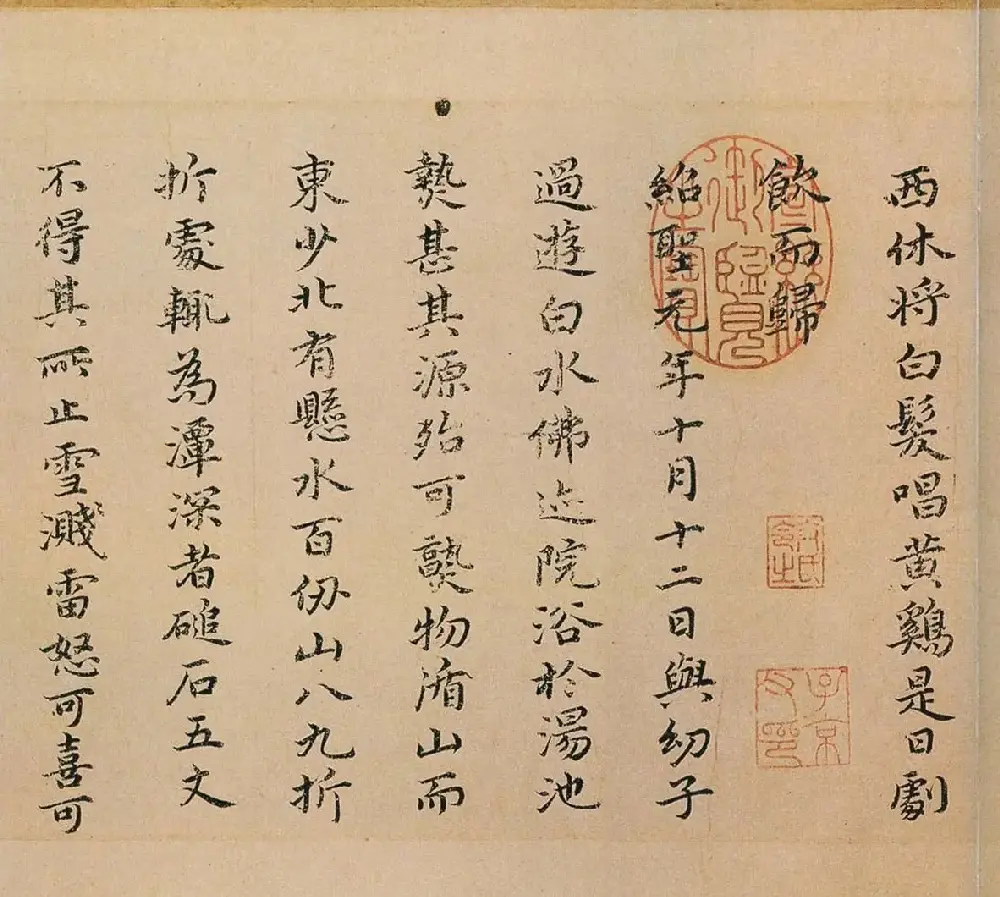 西休将白髮唱黄鷄是日劇
飲而歸
紹聖元年十月十二日與幼子
過遊白水佛迹院浴於湯池
熱甚其源殆可熟物循山而
東少北有懸水百仞山八九折
折處輒為潭深者磓石五丈
不得其所止雪濺雷怒可喜可
御覽
子京父印